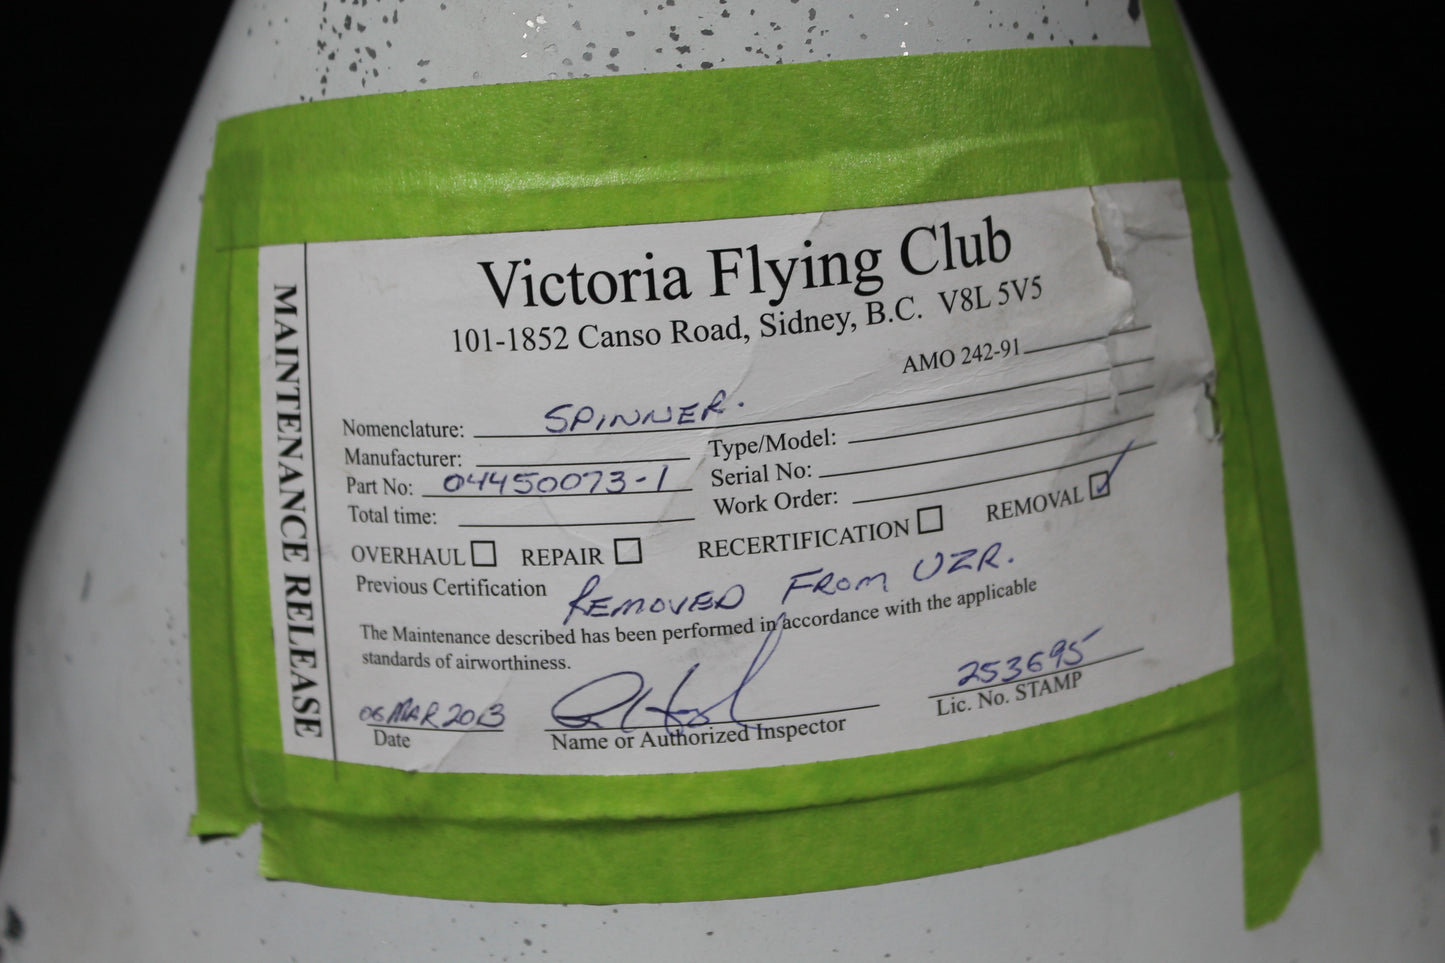 MAINTENANCE RELEASE
Victoria Flying Club
101-1852 Canso Road, Sidney, B.C. V8L 5V5
AMO 242-91
Nomenclature: SPINNER.
Manufacturer:
Type/Model:
Part No: 04450073-1
Serial No:
Total time:
Work Order:
OVERHAUL REPAIR RECERTIFICATION REMOVAL
Previous Certification REMOVED FROM UZR.
The Maintenance described has been performed in accordance with the applicable
standards of airworthiness.
06 MAR 2013
253695
Date
Name or Authorized Inspector
Lic. No. STAMP